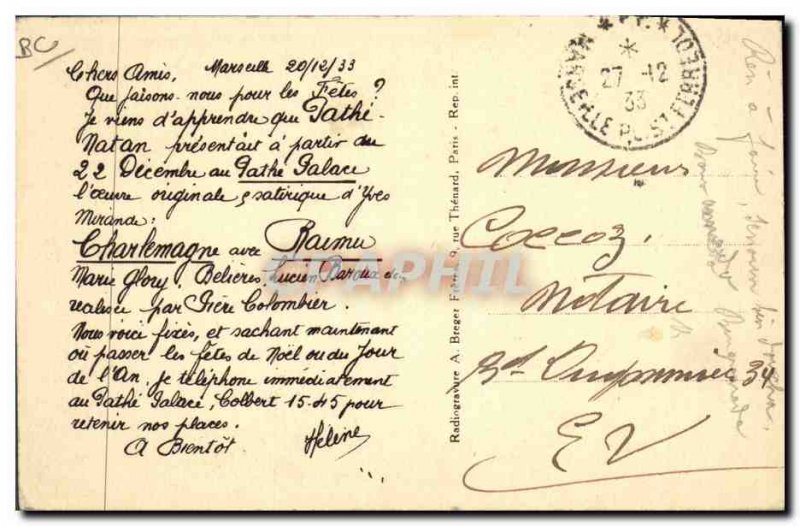 BC/
Chers Amis, Marseille 20/12/33
Que faisons-nous pour les Fêtes?
Je viens d'apprendre que Pathé-
Natan présentait à partir du
22 Décembre au Pathé Palace
l'œuvre originale, satirique d'Yves
Mirande:
Charlemagne avec Raimu
Marie Glory, Belières, Lucien Baroux
réalisée par Pière Colombier.
Nous voici fixés, et sachant maintenant
où passer les fêtes de Noël ou du Jour
de l'An, je téléphone immédiatement
au Pathé Palace, Colbert 15-45 pour
retenir nos places.
A Bientôt Hélène
Radiogravure A. Breger Frères, 9, rue Thénard, Paris - Rep. int.
MARSEILLE PL. ST FERREOL
27-12
33
Monsieur
Coccoz
Notaire
34
EV
DELPHIL